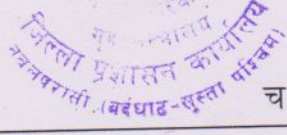 गृह मन्त्रालय
जिल्ला प्रशासन कार्यालय
नवलपरासी (बर्दघाट-सुस्ता पश्चिम)
च